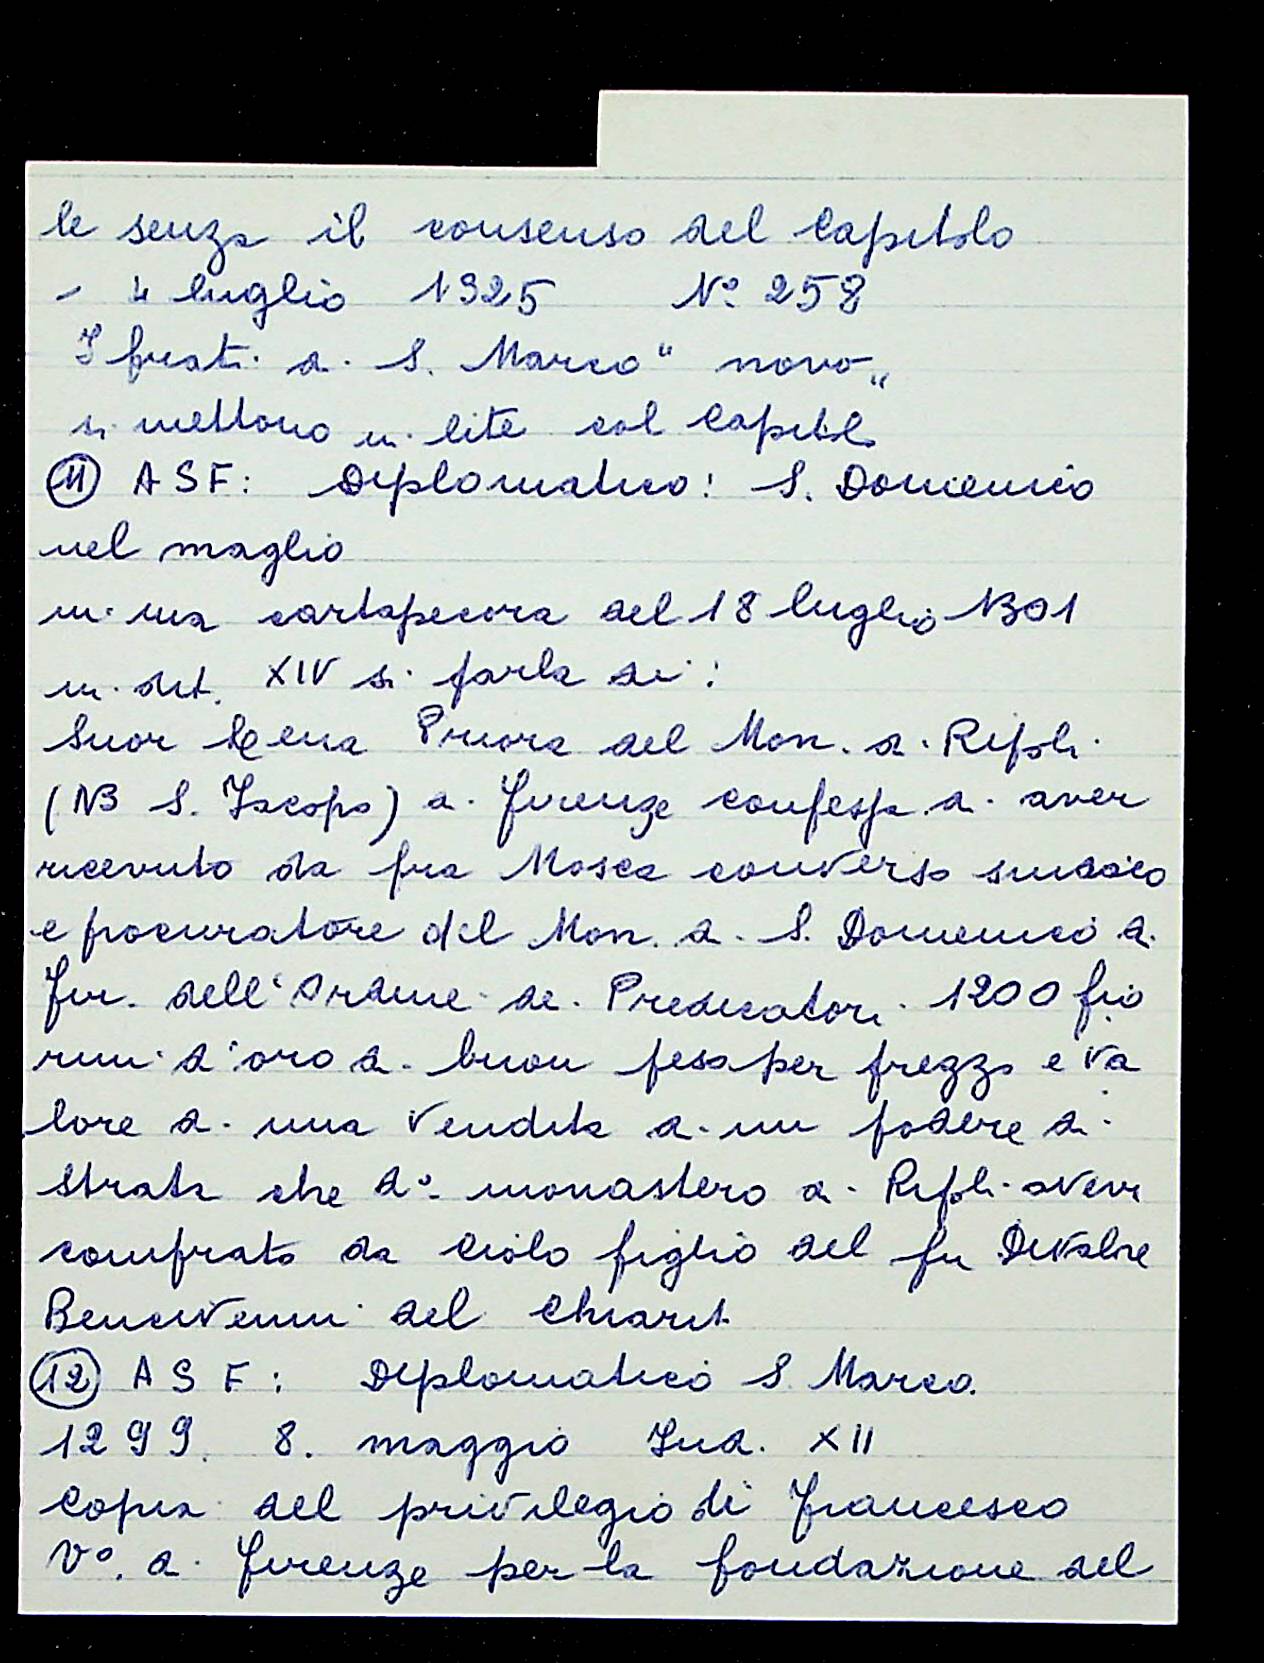 le senza il consenso del Capitolo
- 4 luglio 1325 N° 258
I frati di S. Marco "novo"
si mettono in lite col Capitolo
11 ASF: Diplomatico: S. Domenico
nel maglio
in una cartapecora del 18 luglio 1301
in dit. XIV si parla di:
Suor Lena Priora del Mon. di Ripoli
(NB S. Jacopo) di Firenze confessa di aver
ricevuto da fra Mosca converso sindaco
e procuratore del Mon. di S. Domenico di
Fir. dell'Ordine dei Predicatori 1200 fio
rini d'oro di buon peso per prezzo e va
lore di una vendita di un podere di
strata che do. monastero di Ripoli aveva
comprato da Ciolo figlio del fu
Bencivenni del Chiarit
12 ASF: Diplomatico S. Marco.
1299. 8. maggio Ind. XII
Copia del privilegio di Francesco
Vo. di Firenze per la fondazione del